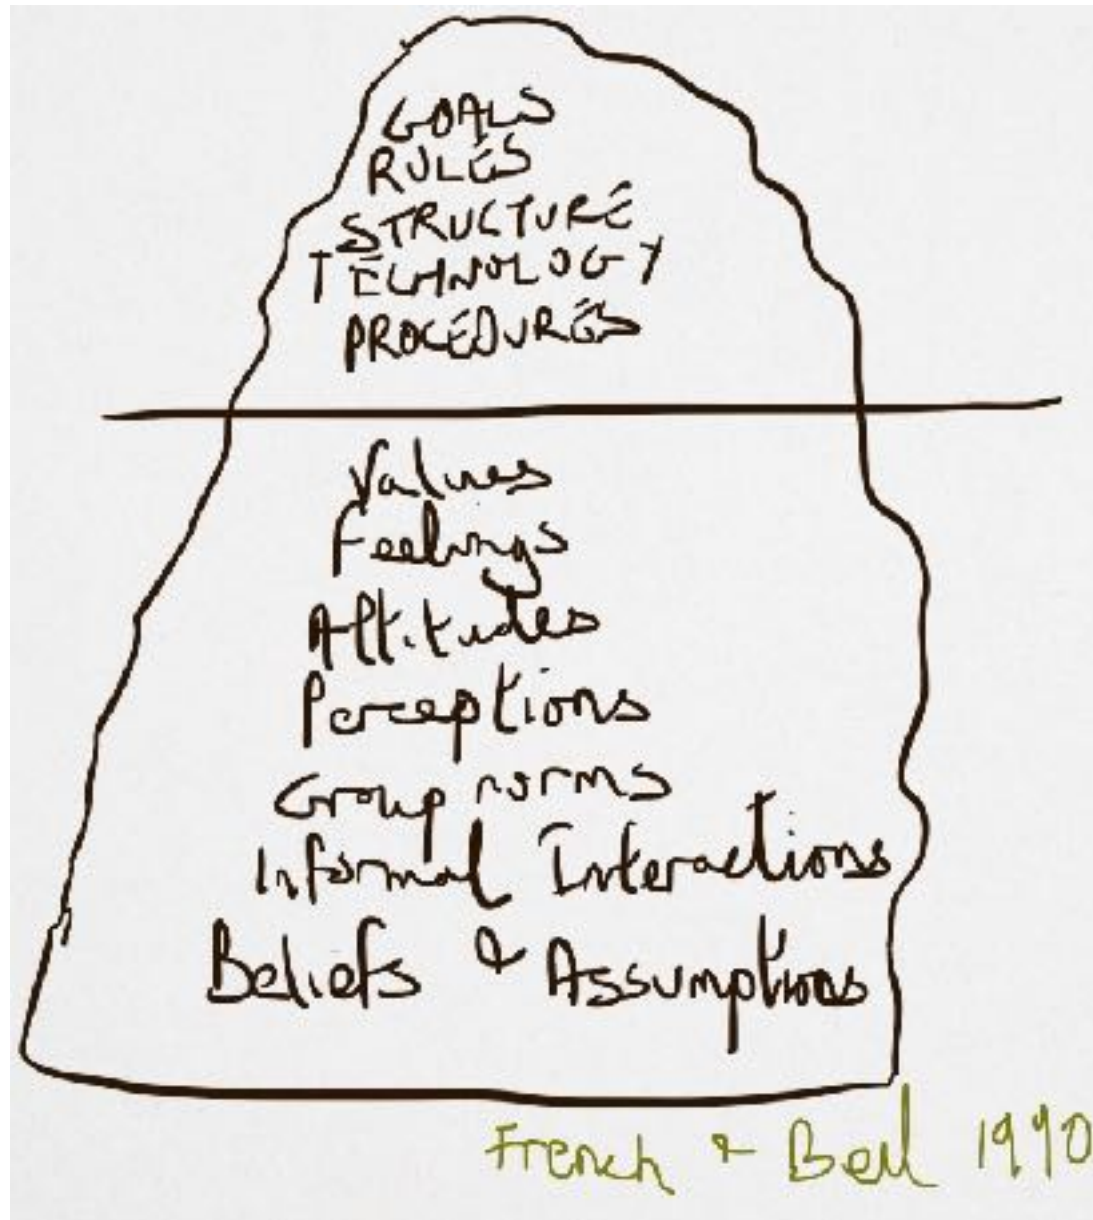 GOALS
RULES
STRUCTURE
TECHNOLOGY
PROCEDURES
Values
Feelings
Attitudes
Perceptions
Group norms
Informal Interactions
Beliefs & Assumptions
French & Bell 1990